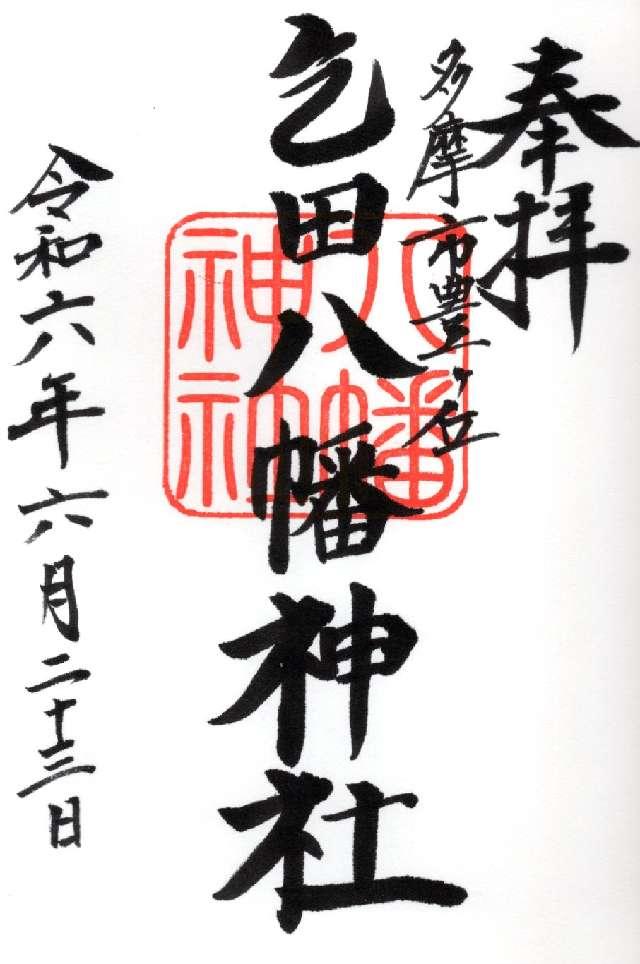 奉拝
多摩市豊ヶ丘
乞田八幡神社
八幡
神社
令和六年六月二十三日